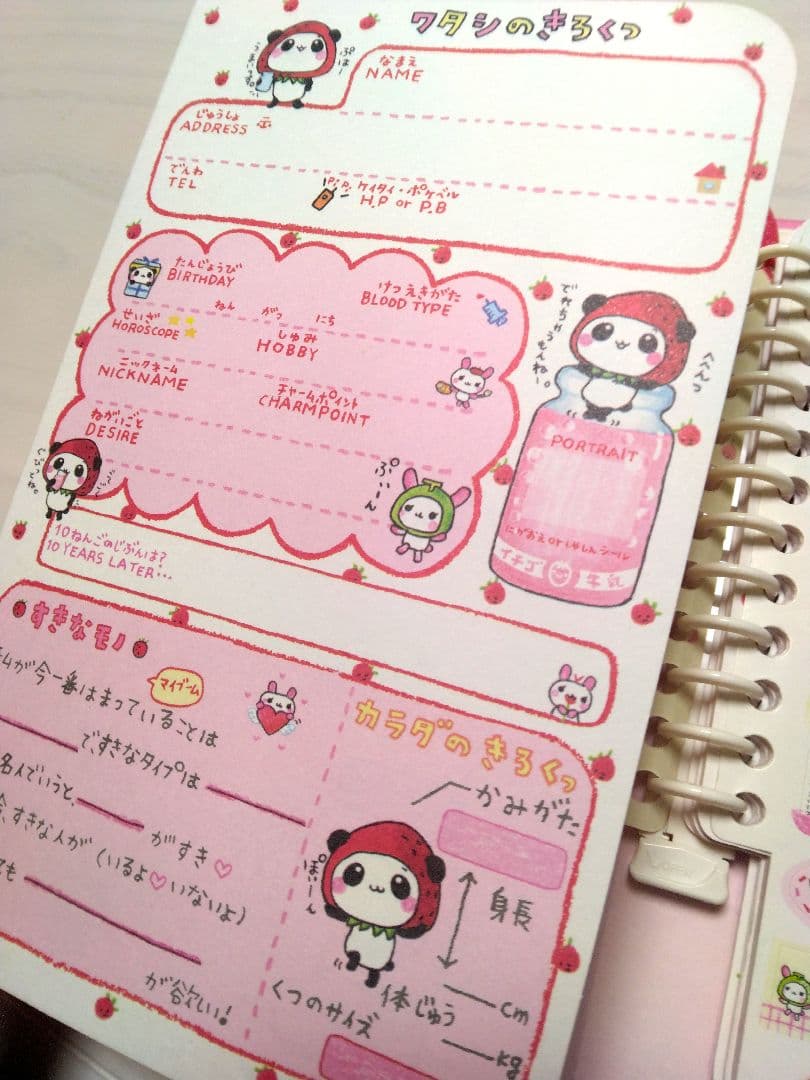 ワタシのきろくっ
ぷはー
うまいっす。
なまえ
NAME
じゅうしょ
ADDRESS 〒
でんわ
TEL
P, P,
ケイタイ・ポケベル
H.P or P.B
たんじょうび
BIRTHDAY
ねん がつ にち
けつえきがた
BLOOD TYPE
せいざ
HOROSCOPE
しゅみ
HOBBY
ニックネーム
NICKNAME
チャームポイント
CHARMPOINT
ねがいごと
DESIRE
ぷぃーん
でれちゃうもんねー。
へへんっ
PORTRAIT
にがおえ or しゃしんシール
イチゴ 牛乳
10ねんごのじぶんは?
10 YEARS LATER...
すきなモノ
マイブーム
ムが今一番はまっていることは
で、すきなタイプは
名人でいうと、
がすき♡
、すきな人が (いるよ♡いないよ)
ても
が欲い!
カラダのきろくっ
かみがた
ぽぃーん
身長
cm
体じゅう
kg
くつのサイズ